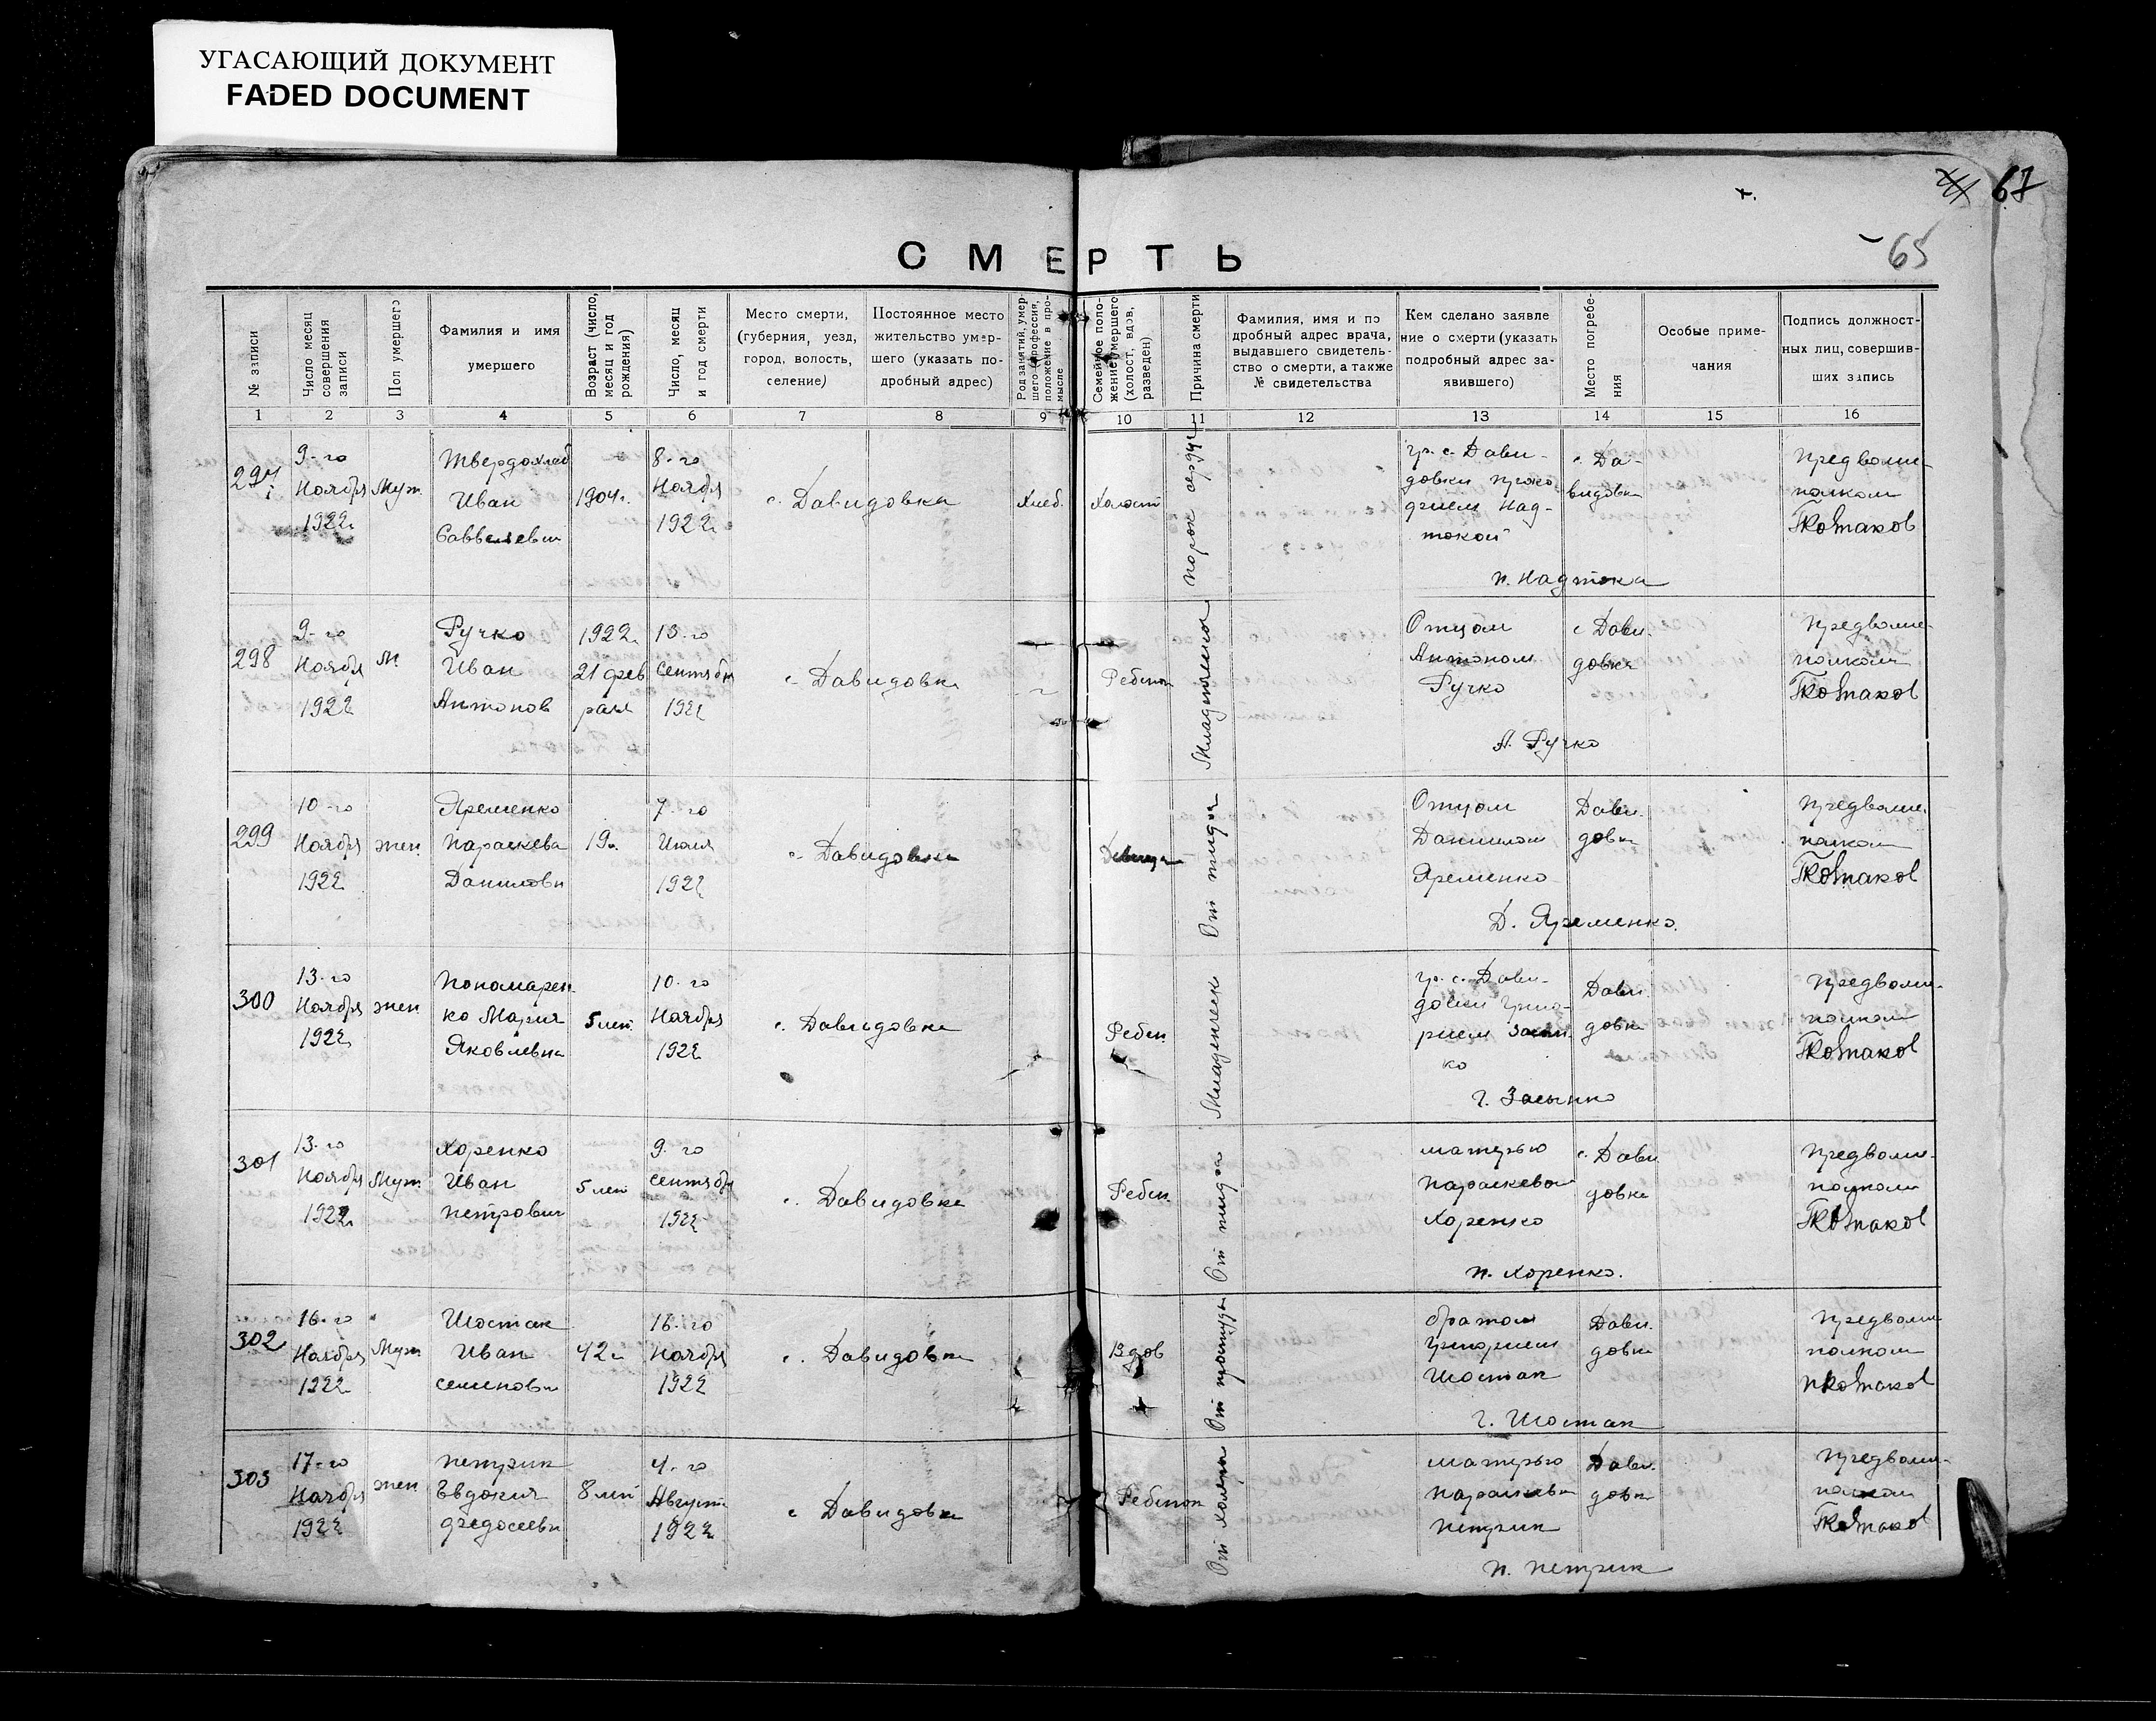 УГАСАЮЩИЙ ДОКУМЕНТ
FADED DOCUMENT
67
65
СМЕРТЬ
№ записи
Число месяц совершения записи
Пол умершего
Фамилия и имя умершего
Возраст (число, месяц и год рождения)
Число, месяц и год смерти
Место смерти, (губерния, уезд, город, волость, селение)
Постоянное место жительство умершего (указать подробный адрес)
Род занятий, умершего (профессия, положение в промысле
Семейное положение умершего (холост, вдов, разведен)
Причина смерти
Фамилия, имя и подробный адрес врача, выдавшего свидетельство о смерти, а также № свидетельства
Кем сделано заявление о смерти (указать подробный адрес заявившего)
Место погребения
Особые примечания
Подпись должностных лиц, совершивших запись
1 2 3 4 5 6 7 8 9 10 11 12 13 14 15 16
297
9-го Ноября 1922г.
Муж.
Твердохлеб Иван Савельевич
1904г.
8-го Ноября 1922г.
с. Давидовка
Хлеб.
Холост
Порок сердца
гр. с. Давидовки Надтокой
с. Давидовка
Предволисполком
П. Надтока
298
9-го Ноября 1922
м
Ручко Иван Антонов
1922г. 21 февраля
13-го Сентября 1922
с. Давидовка
Ребенок
Отцом Антоном Ручко
с. Давидовка
Предволисполком
А. Ручко
299
10-го Ноября 1922
жен.
Яременко Параскева Даниловн
19л.
7-го Июля 1922
с. Давидовка
Девица
От тифа
Отцом Даниилом Яременко
Давидовка
Предволисполком
Д. Яременко.
300
13-го Ноября 1922
жен
Пономаренко Мария Яковлевна
5 лет
10-го Ноября 1922
с. Давидовка
Ребен.
Младенческ
гр. с. Давидовки Григорием
Давидовка
Предволисполком
301
13-го Ноября 1922г.
Муж
Хоренко Иван Петрович
5 лет
9-го Сентября 1922
с. Давидовка
Ребен.
От тифа
матерью Параскевой Хоренко
с. Давидовка
Предволисполком
П. Хоренко.
302
16-го Ноября 1922
Муж
Шостак Иван Семенови
42л
16-го Ноября 1922
с. Давидовка
Вдов
От простуды
братом Григорием Шостак
Давидовка
Предволисполком
Г. Шостак
303
17-го Ноября 1922
жен
Петрик Евдокия Федосеевн
8 лет
4-го Август 1922
с Давидовка
Ребенок
От холеры
матерью Параскевой Петрик
Давидовка
Предволисполком
П. Петрик